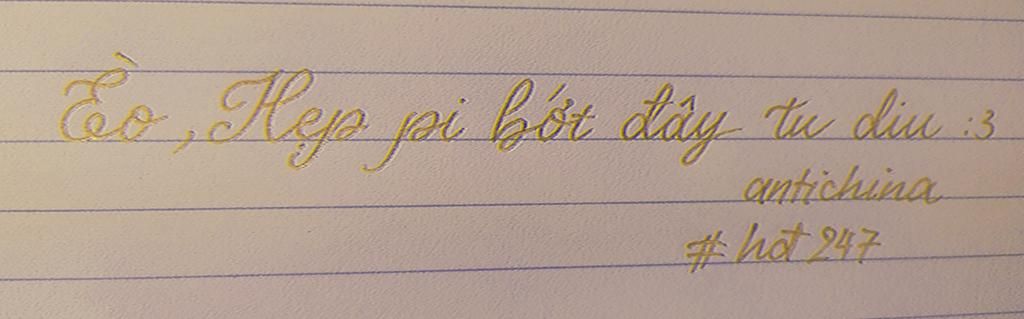 Èo, Hẹp pi bớt đây tu diu :3
antichina
# hot 247